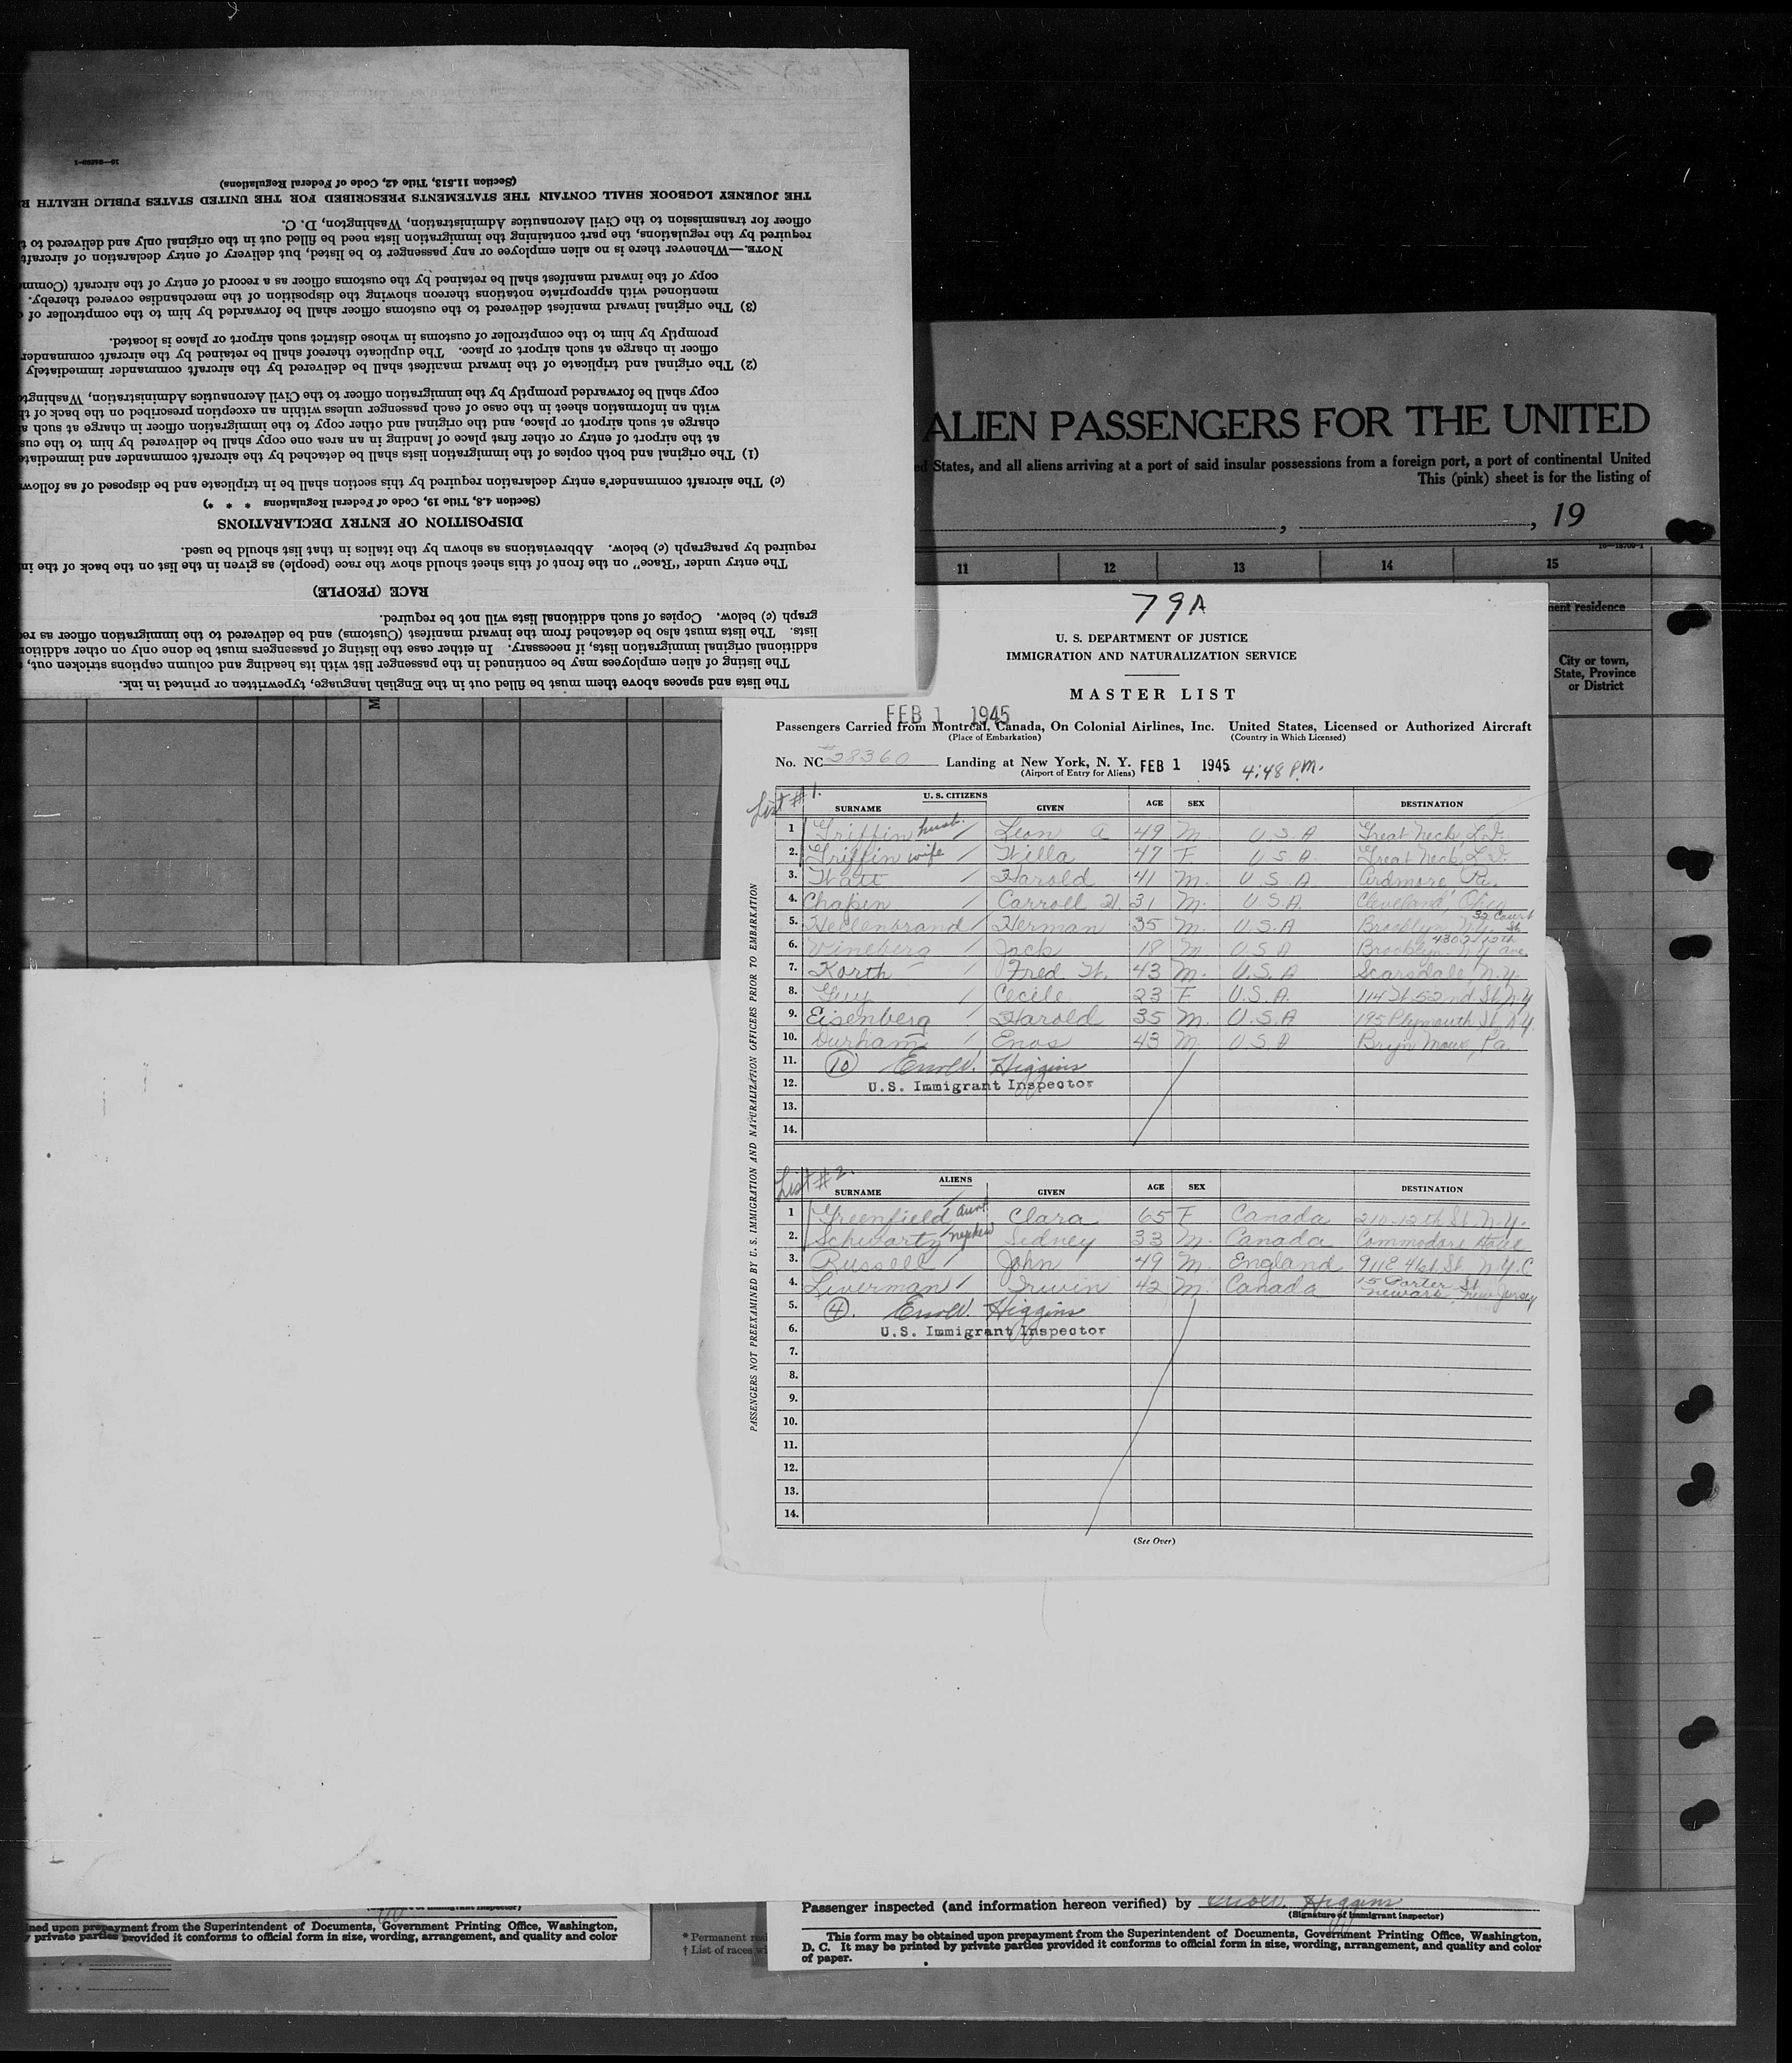 16—24299-1
(Section 11.513, Title 42, Code of Federal Regulations)
THE JOURNEY LOGBOOK SHALL CONTAIN THE STATEMENTS PRESCRIBED FOR THE UNITED STATES PUBLIC HEALTH
The lists and spaces above them must be filled out in the English language, typewritten or printed in ink.
The listing of alien employees may be continued in the passenger list with its heading and column captions stricken out,
additional original immigration lists, if necessary. In either case the listing of passengers must be done only on other
lists. The lists must also be detached from the inward manifest (Customs) and be delivered to the immigration officer as
graph (c) below. Copies of such additional lists will not be required.
RACE (PEOPLE)
The entry under "Race" on the front of this sheet should show the race (people) as given in the list on the back of the
required by paragraph (c) below. Abbreviations as shown by the italics in that list should be used.
DISPOSITION OF ENTRY DECLARATIONS
(Section 4.8, Title 19, Code of Federal Regulations * * *)
(c) The aircraft commander's entry declaration required by this section shall be in triplicate and be disposed of as
(1) The original and both copies of the immigration lists shall be detached by the aircraft commander and
at the airport of entry or other first place of landing in an area one copy shall be delivered by him to the
charge at such airport or place, and the original and other copy to the immigration officer in charge at such
with an information sheet in the case of each passenger unless within an exception prescribed on the back of
copy shall be forwarded promptly by the immigration officer to the Civil Aeronautics Administration,
(2) The original and triplicate of the inward manifest shall be delivered by the aircraft commander immediately
officer in charge at such airport or place. The duplicate thereof shall be retained by the aircraft commander
promptly by him to the comptroller of customs in whose district such airport or place is located.
(3) The original inward manifest delivered to the customs officer shall be forwarded by him to the comptroller of
mentioned with appropriate notations thereon showing the disposition of the merchandise covered thereby.
copy of the inward manifest shall be retained by the customs officer as a record of entry of the aircraft
NOTE.—Whenever there is no alien employee or any passenger to be listed, but delivery of entry declaration of aircraft
required by the regulations, the part containing the immigration lists need be filled out in the original only and delivered to
officer for transmission to the Civil Aeronautics Administration, Washington, D. C.
ALIEN PASSENGERS FOR THE UNITED
States, and all aliens arriving at a port of said insular possessions from a foreign port, a port of continental United
This (pink) sheet is for the listing of
, , 19
11 12 13 14 15
residence
City or town,
State, Province
or District
79A
U. S. DEPARTMENT OF JUSTICE
IMMIGRATION AND NATURALIZATION SERVICE
MASTER LIST
FEB 1 1945
Passengers Carried from Montreal, Canada, On Colonial Airlines, Inc. United States, Licensed or Authorized Aircraft
(Place of Embarkation) (Country in Which Licensed)
No. NC #28360 Landing at New York, N. Y. FEB 1 1945 4:48 P.M.
(Airport of Entry for Aliens)
List #1.
U. S. CITIZENS
SURNAME GIVEN AGE SEX DESTINATION
1 Griffin husb. / Leon A 49 M. U.S.A Great Neck, L.I.
2. Griffin wife / Willa 47 F U.S.A Great Neck, L.I.
3. Watt / Harold 41 M. U.S.A. Ardmore, Pa.
4. Chapin / Carroll H. 31 M. U.S.A. Cleveland, Ohio
5. Hellenbrand / Herman 35 M. U.S.A Brooklyn N.Y. 32 Court St.
6. Wineberg / Jack 18 M U.S.A Brooklyn N.Y. 4302 12th Ave.
7. Korth / Fred W. 43 M. U.S.A Scarsdale, N.Y.
8. Guy / Cecile 23 F U.S.A. 114 W. 52nd St, N.Y
9. Eisenberg / Harold 35 M. U.S.A 195 Plymouth St, N.Y.
10. Durham / Enos 43 M. U.S.A Bryn Mawr, Pa.
11. (10) Errol W. Higgins
12. U.S. Immigrant Inspector
13.
14.
List #2.
ALIENS
SURNAME GIVEN AGE SEX DESTINATION
1 Greenfield aunt / Clara 65 F Canada 210-12th St. N.Y.
2. Schwartz nephew Sidney 33 M. Canada Commodore Hotel
3. Russell / John 49 M. England 911 E 41st St. N.Y.C
4. Liverman / Irwin 42 M. Canada 15 Porter St. Newark, New Jersey
5. (4). Errol W. Higgins
6. U.S. Immigrant Inspector
7.
8.
9.
10.
11.
12.
13.
14.
(See Over)
PASSENGERS NOT PREEXAMINED BY U. S. IMMIGRATION AND NATURALIZATION OFFICERS PRIOR TO EMBARKATION
upon prepayment from the Superintendent of Documents, Government Printing Office, Washington,
private parties provided it conforms to official form in size, wording, arrangement, and quality and color
* Permanent
† List of races
Passenger inspected (and information hereon verified) by Errol W. Higgins
(Signature of Immigrant Inspector)
This form may be obtained upon prepayment from the Superintendent of Documents, Government Printing Office, Washington,
D. C. It may be printed by private parties provided it conforms to official form in size, wording, arrangement, and quality and color
of paper.